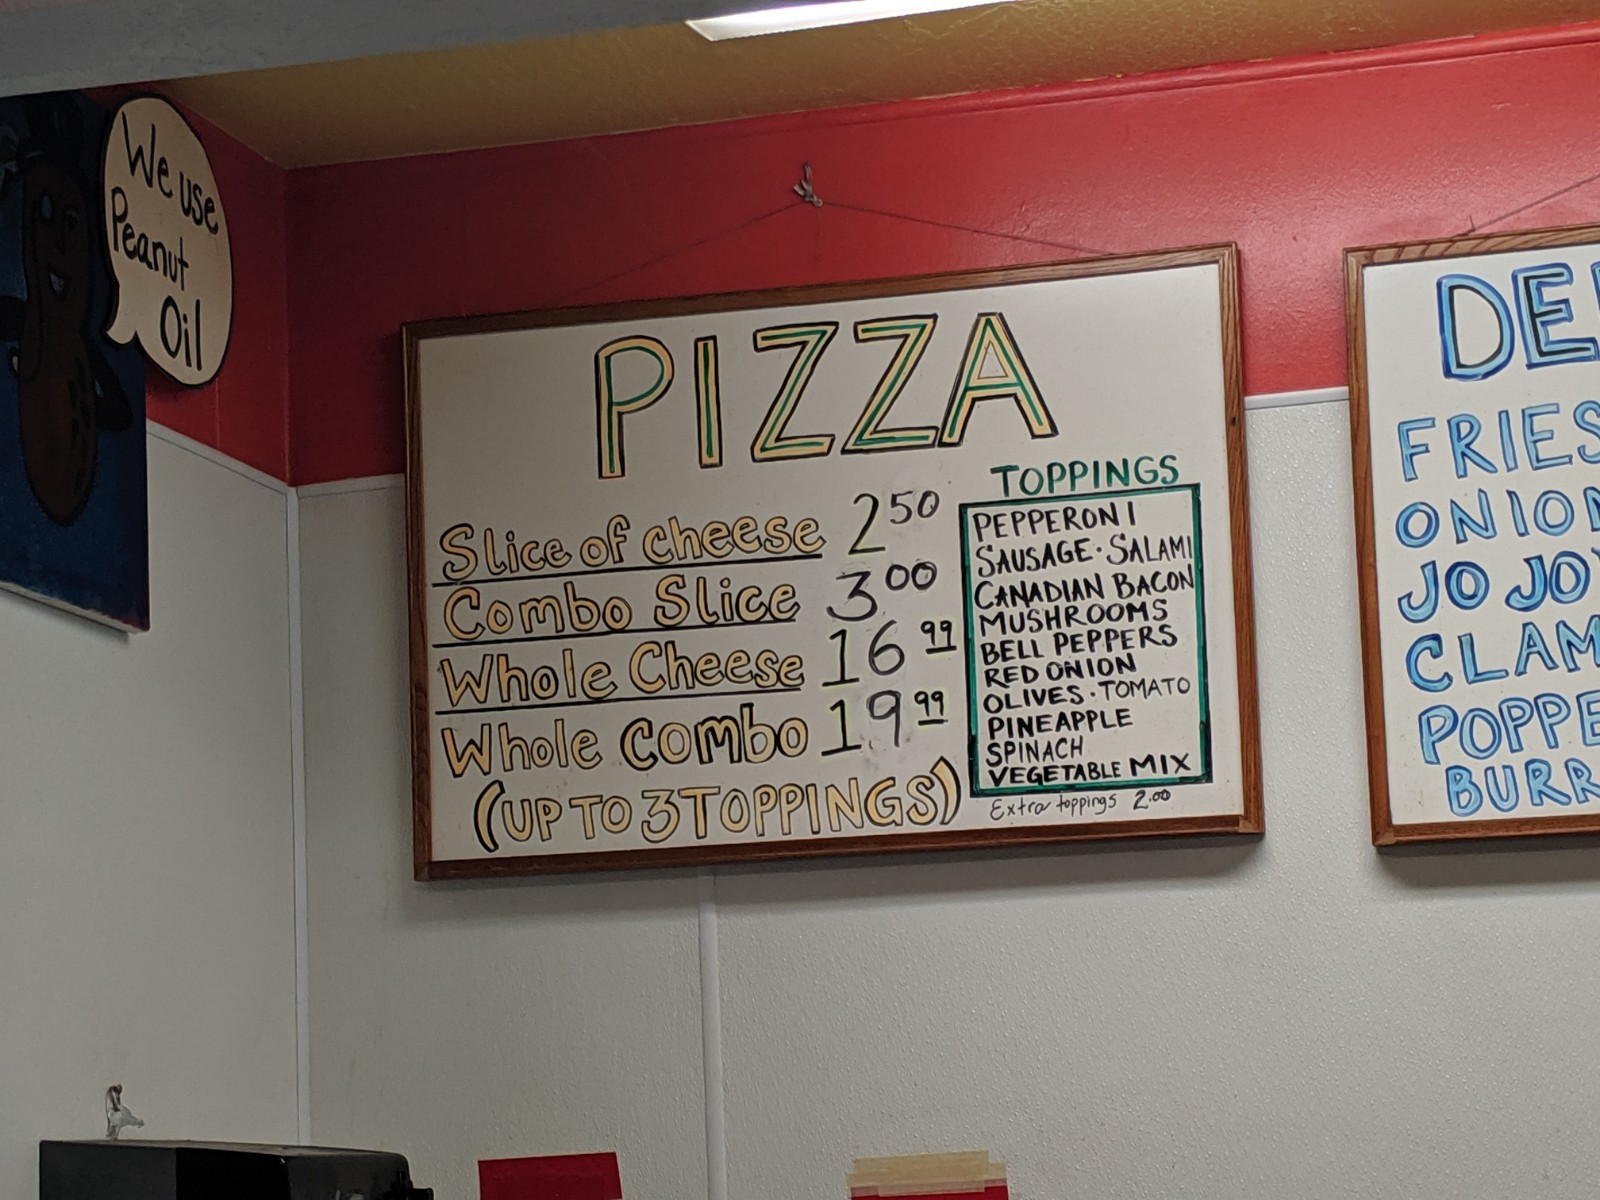 We use
Peanut
Oil
PIZZA
Slice of cheese 2 50
Combo Slice 3 00
Whole Cheese 16 99
Whole Combo 19 99
(UP TO 3 TOPPINGS)
TOPPINGS
PEPPERONI
SAUSAGE · SALAMI
CANADIAN BACON
MUSHROOMS
BELL PEPPERS
RED ONION
OLIVES · TOMATO
PINEAPPLE
SPINACH
VEGETABLE MIX
Extra toppings 2.00
FRIES
JO JO
CLAM
BURR